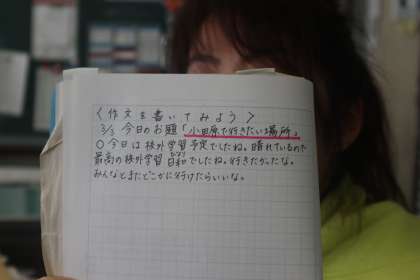 〈作文を書いてみよう〉
3/5 今日のお題「小田原で行きたい場所」
○今日は校外学習予定でしたね。晴れているので
最高の校外学習日和でしたね。行きたかったな。
みんなとまたどこかに行けたらいいな。